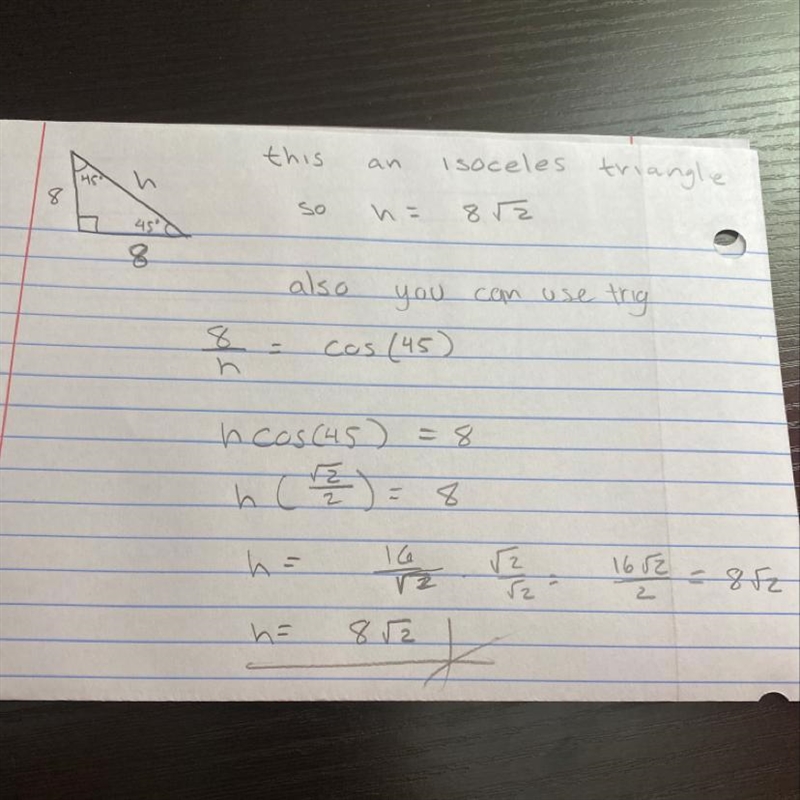 this an isoceles triangle
45° h
8
so h = 8√2
45°
8
also you can use trig
8/h = cos(45)
h cos(45) = 8
h (√2/2) = 8
h = 16/√2 · √2/√2 = 16√2/2 = 8√2
h = 8√2